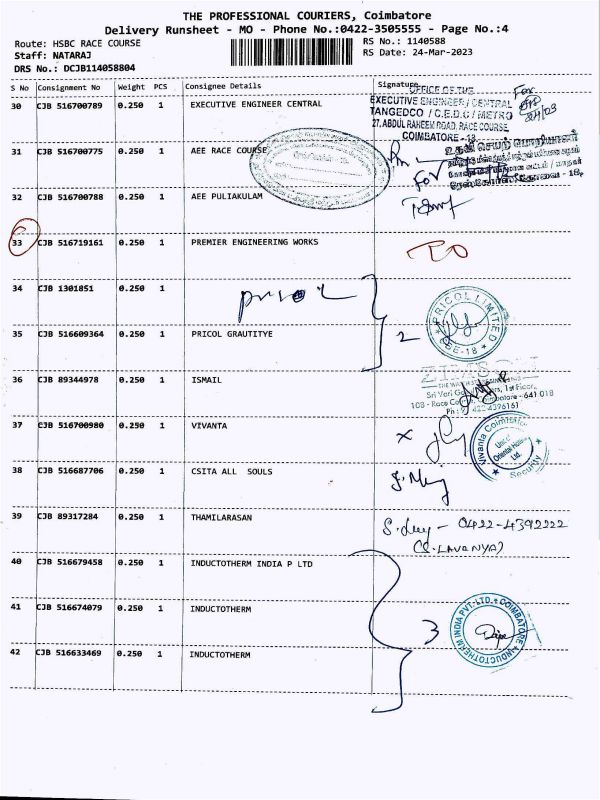 THE PROFESSIONAL COURIERS, Coimbatore
Delivery Runsheet - MO - Phone No.:0422-3505555 - Page No.:4
Route: HSBC RACE COURSE
RS No.: 1140588
Staff: NATARAJ
RS Date: 24-Mar-2023
DRS No.: DCJB114058804
S No Consignment No Weight PCS Consignee Details Signature
30 CJB 516700789 0.250 1 EXECUTIVE ENGINEER CENTRAL
OFFICE OF THE
EXECUTIVE ENGINEER / CENTRAL
TANGEDCO / C.E.D.G / METRO
27, ABDUL RAHEEM ROAD, RACE COURSE,
COIMBATORE - 18
For
31 CJB 516700775 0.250 1 AEE RACE COURSE
உதவி செயற் பொறியாளர்
For
32 CJB 516700788 0.250 1 AEE PULIAKULAM
33 CJB 516719161 0.250 1 PREMIER ENGINEERING WORKS
34 CJB 1301851 0.250 1
pricol
PRICOL LIMITED
CBE-18
2
35 CJB 516609364 0.250 1 PRICOL GRAUTITYE
36 CJB 89344978 0.250 1 ISMAIL
ZIMSON
103 - Race Coimbatore - 641 018
Ph : 0422 4396161
37 CJB 516700980 0.250 1 VIVANTA
x
Vivanta Coimbatore
Unit of
Oriental Hotels
Ltd.
Security
38 CJB 516687706 0.250 1 CSITA ALL SOULS
39 CJB 89317284 0.250 1 THAMILARASAN
0422-4392222
(C.LAVANYA)
40 CJB 516679458 0.250 1 INDUCTOTHERM INDIA P LTD
41 CJB 516674079 0.250 1 INDUCTOTHERM
3
INDUCTOTHERM INDIA PVT. LTD. COIMBATORE
42 CJB 516633469 0.250 1 INDUCTOTHERM